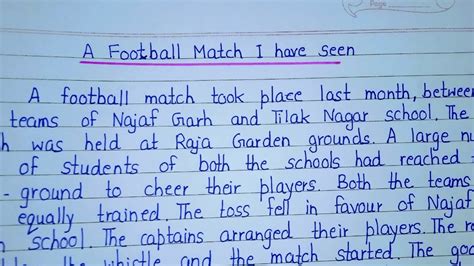 Page
A Football Match I have seen
A football match took place last month, between
teams of Najaf Garh and Tilak Nagar school. The
h was held at Raja Garden grounds. A large nu
of students of both the schools had reached
- ground to cheer their players. Both the teams
equally trained. The toss fell in favour of Najaf
school. The captains arranged their players. The re
the whistle and the match started. The goa